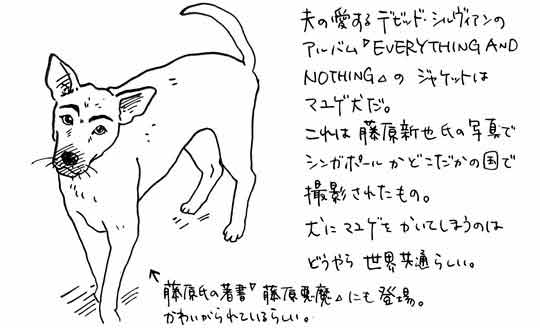 夫の愛するデビッド・シルヴィアンの
アルバム『EVERYTHING AND
NOTHING』の ジャケットは
マユゲ犬だ。
これは 藤原新也氏の写真で
シンガポールかどこだかの国で
撮影されたもの。
犬にマユゲをかいてしまうのは
どうやら 世界共通らしい。
藤原氏の著書『藤原悪魔』にも登場。
かわいがられているらしい。